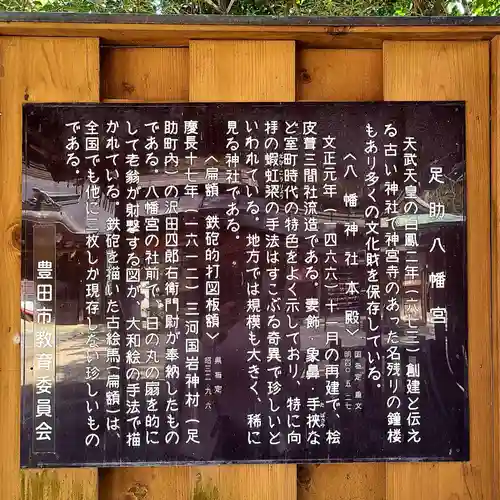 足助八幡宮
天武天皇の白鳳二年(六七三)創建と伝え
る古い神社で神宮寺のあった名残りの鐘楼
もあり多くの文化財を保存している。
〈八幡神社本殿〉 国指定 重文 明四〇・五・二七
文正元年(一四六六)十一月の再建で、桧
皮葺三間社流造である。妻飾・象鼻・手挾な
ど室町時代の特色をよく示しており、特に向
拝の蝦虹梁の手法はすこぶる奇異で珍しいと
いわれている。地方では規模も大きく、稀に
見る神社である。
〈扁額 鉄砲的打図板額〉 県指定 昭三二・九・六
慶長十七年(一六一二)三河国岩神村(足
助町内)の沢田四郎右衛門尉が奉納したもの
である。八幡宮の社前で、日の丸の扇を的に
して老翁が射撃する図が、大和絵の手法で描
かれている。鉄砲を描いた古絵馬(扁額)は、
全国でも他に二枚しか現存しない珍しいもの
である。
豊田市教育委員会